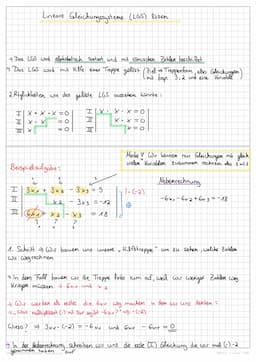 Lineare Gleichungssysteme (LGS) lösen
→ Das LGS wird alphabetisch sortiert und mit römischen Zahlen beschriftet
→ Das LGS wird mit Hilfe einer Treppe gelöst (Ziel → Treppenform aller Gleichungen)
mit 3, 2 und eine Variable
2 Möglichkeiten wie das gelöste LGS aussehen könnte:
I | x + x + x = 0 |
II | x x = 0 |
III | x = 0 |
I | x x x = 0 |
II | x x = 0 |
III | x = 0 |
Merke! Wir können nur Gleichungen mit gleich
vielen Variablen zusammen rechnen
Beispielaufgabe:
Nebenrechnung
I | 3x₁ + 3x₂ - 3x₃ = 9 | · (-2)
II | x₂ - 3x₃ = -12
III | 6x₁ + x₂ - x₃ = 18
-6x₁ - 6x₂ + 6x₃ = -18
1. Schritt → Wir bauen uns unsere "Hilfstreppe" um zu sehen welche Zahlen
wir wegrechnen
→ In dem Fall bauen wir die Treppe links zum auf, weil wir weniger Zahlen weg
kriegen müssen → 6x₁ und x₂
→ Wir werden als erstes die 6x₁ weg machen in dem wir uns denken:
(-2)
→ In der Nebenrechnung schreiben wir uns die erste (I) Gleichung die wir mal (-2)
genommen haben auf